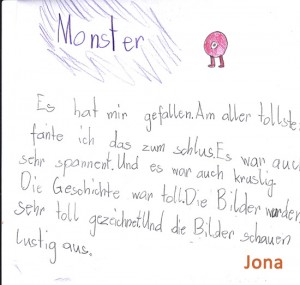 Monster
Es hat mir gefallen.Am aller tollste
fante ich das zum schlus.Es war auch
sehr spannent.Und es war auch kruslig
Die Geschichte war toll.Die Bilder wurden
sehr toll gezeichnet.Und die Bilder schauen
lustig aus.
Jona